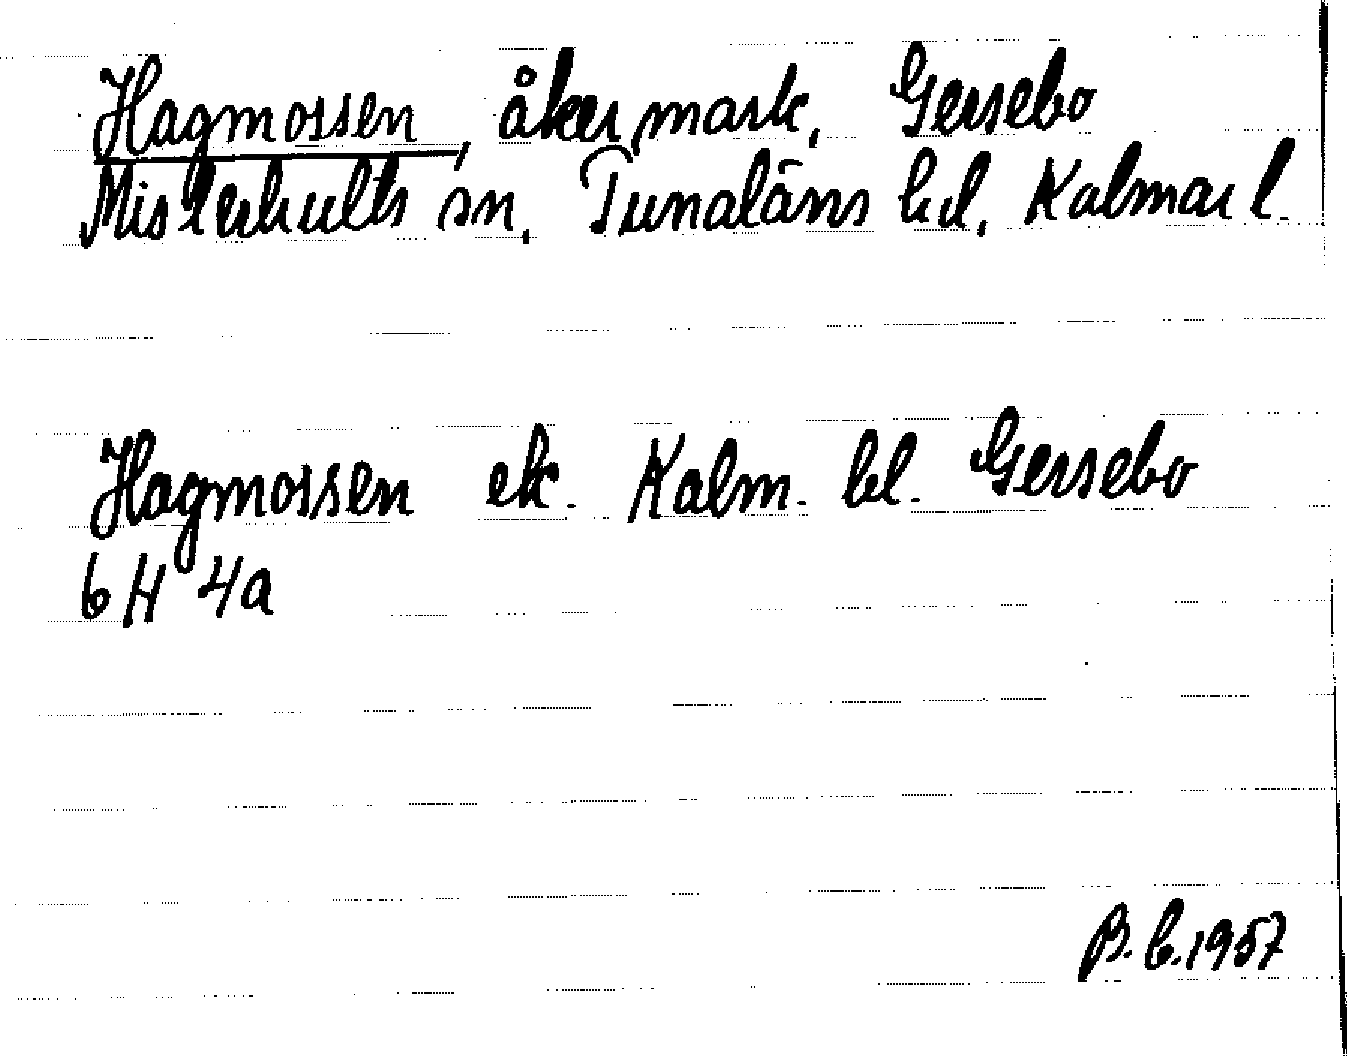 Hagmossen, åkermark, Gersebo
Misterhults sn, Tunaläns hd, Kalmar l.
Hagmossen ek. Kalm. bl. Gersebo
6H 4a
B.b.1957